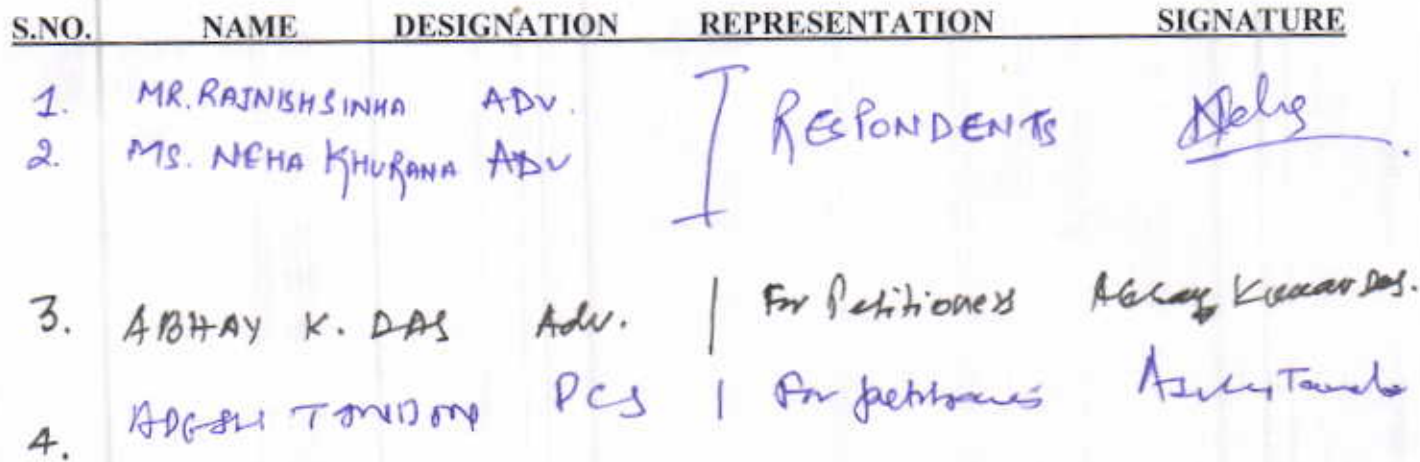 S.NO. NAME DESIGNATION REPRESENTATION SIGNATURE
1. MR. RAJNISH SINHA ADV. RESPONDENTS Neha
2. MS. NEHA KHURANA ADV
3. ABHAY K. DAS Adv. | For Petitioners Abhay Kumar Das.
4. ADESH TANDON PCS | For petitioners